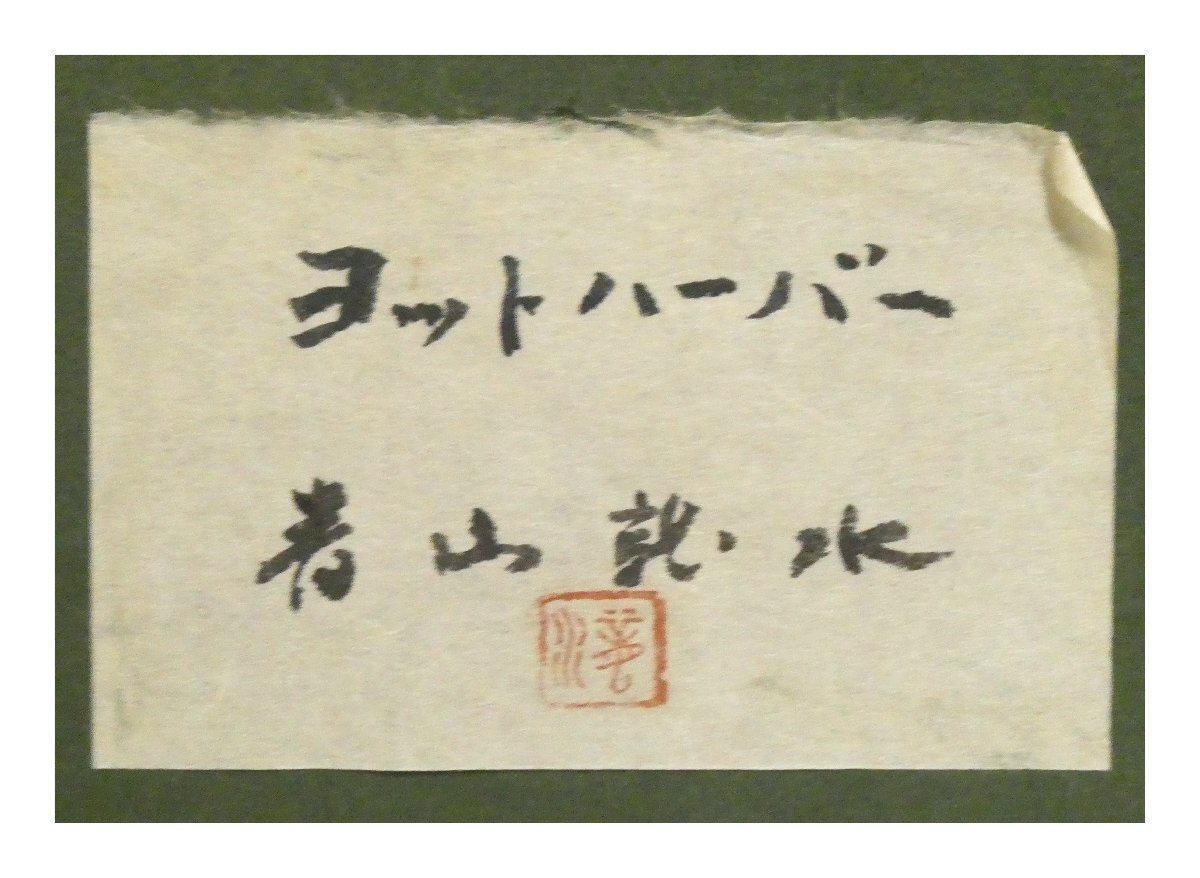 ヨットハーバー
青山龍水